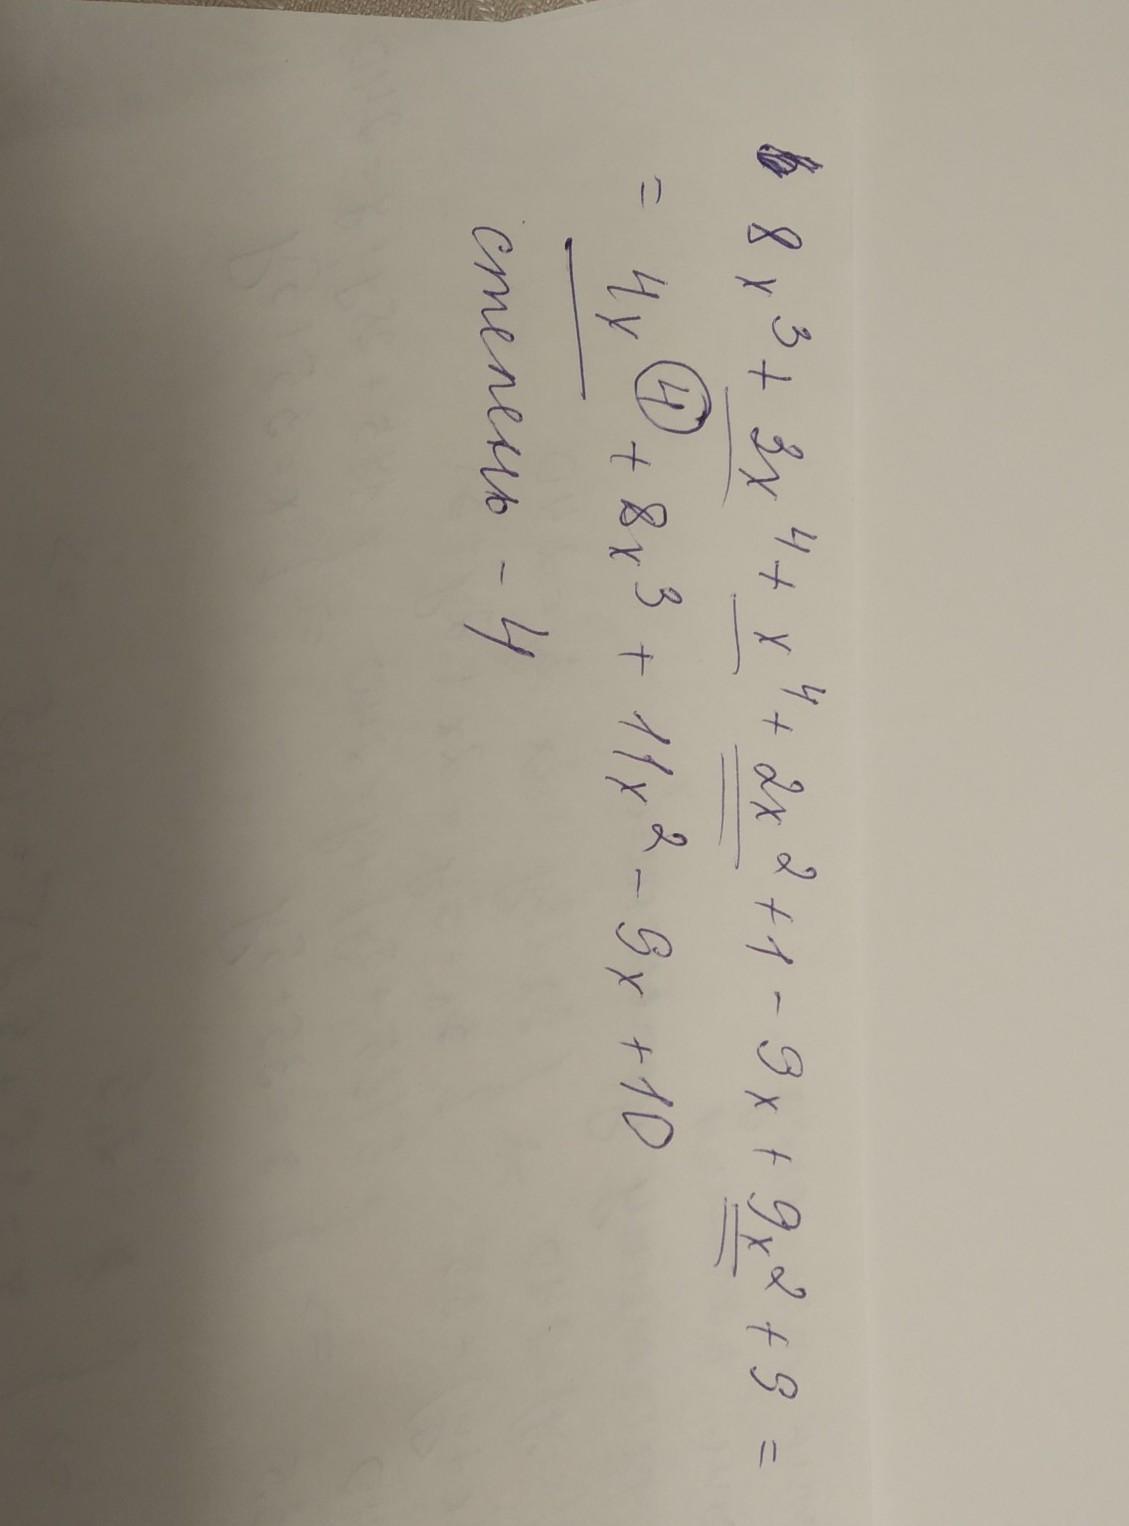 8x³ + 3x⁴ + x⁴ + 2x² + 1 - 9x + 9x² + 9 =
= 4x⁴ + 8x³ + 11x² - 9x + 10
степень - 4